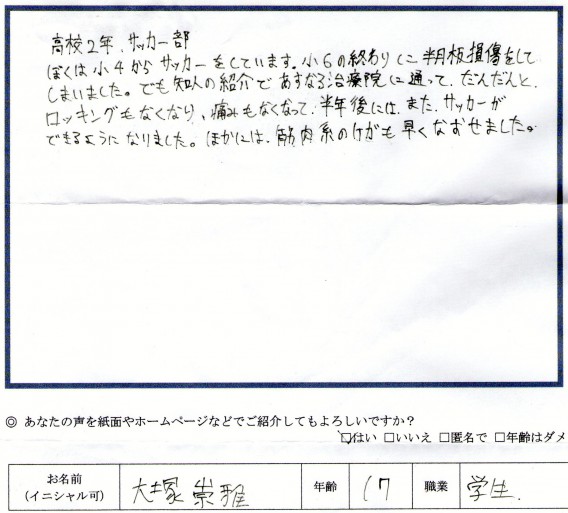 高校2年、サッカー部
ぼくは小4からサッカーをしています。小6の終わりに半月板損傷をして
しまいました。でも知人の紹介であすなろ治療院に通って、だんだんと、
ロッキングもなくなり、痛みもなくなって、半年後には、また、サッカーが
できるようになりました。ほかには、筋肉系のけがも早くなおせました。
◎ あなたの声を紙面やホームページなどでご紹介してもよろしいですか?
☑はい □いいえ □匿名で □年齢はダメ
お名前 (イニシャル可) 大塚崇雅 年齢 17 職業 学生.